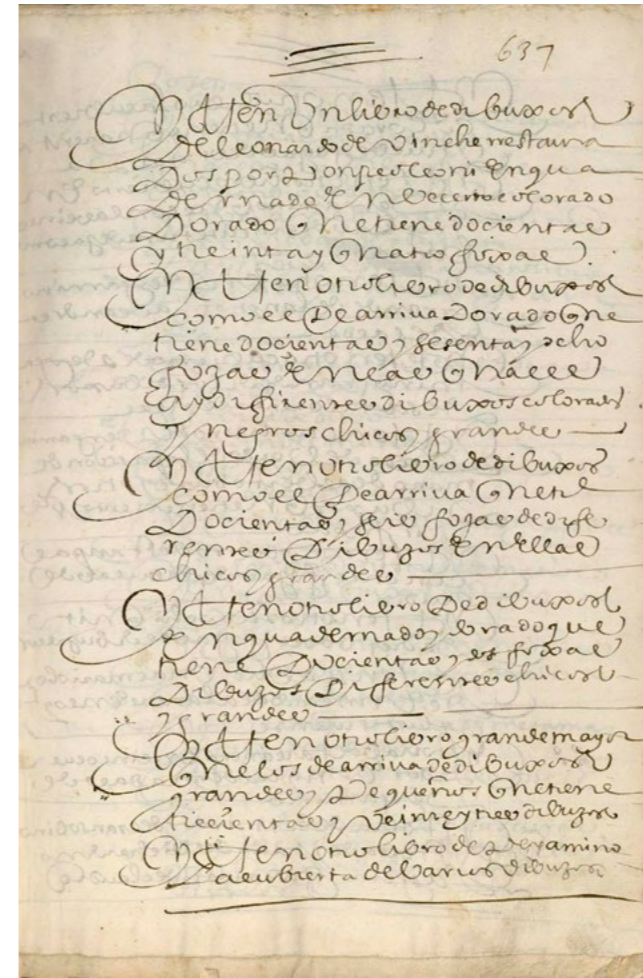 637
Yten Un libro de dibuxos
De leonardo de Vinche rrestaura
Dos por Ponpeo leoni Enqua
Dernado En becerro colorado
Dorado Que tiene docientas
y treinta y quatro foxas.
Yten otro libro de dibuxos
como el De arriva Dorado Que
tiene docientas y sesenta y ocho
fojas En las Quales
ay diferentes dibuxos colorados
y negros chicos y grandes
Yten otro libro de dibuxos
como el De arriva Que tiene
Docientas y seis fojas de dife
rentes Dibuzos En ellas
chicos y grandes
Yten otro libro De dibuxos
Enquadernado y dorado que
tiene Docientas y dos foxas
Dibuzos Diferentes chicos
y grandes
Yten otro libro grande mayor
Que los de arriva de dibuxos
grandes y Pequeños Que tiene
trecientas y Veinte y tres dibuzos
Yten otro libro de Pergamino
la cubierta de Varios dibuzos